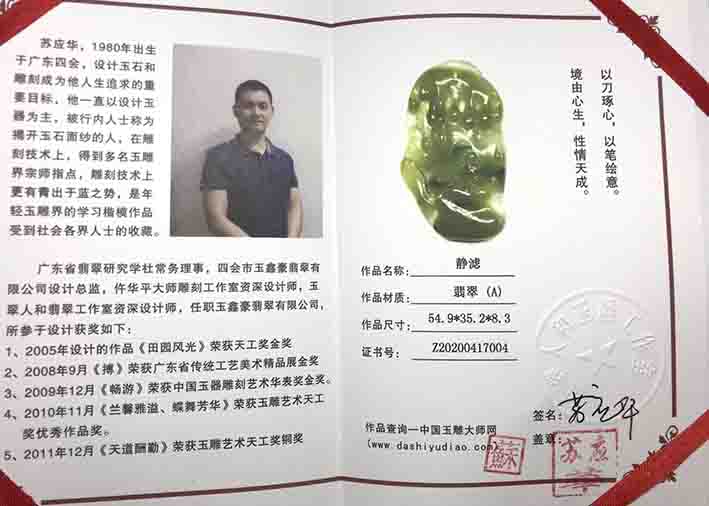 苏应华，1980年出生
于广东四会，设计玉石和
雕刻成为他人生追求的重
要目标，他一直以设计玉
器为主，被行内人士称为
揭开玉石面纱的人，在雕
刻技术上，得到多名玉雕
界宗师指点，雕刻技术上
更有青出于蓝之势，是年
轻玉雕界的学习楷模作品
受到社会各界人士的收藏。
广东省翡翠研究学社常务理事，四会市玉鑫豪翡翠有
限公司设计总监，仵华平大师雕刻工作室资深设计师，玉
翠人和翡翠工作室资深设计师，任职玉鑫豪翡翠有限公司，
所参于设计获奖如下：
1、2005年设计的作品《田园风光》荣获天工奖金奖
2、2008年9月《搏》荣获广东省传统工艺美术精品展金奖
3、2009年12月《畅游》荣获中国玉器雕刻艺术华表奖金奖。
4、2010年11月《兰馨雅溢、蝶舞芳华》荣获玉雕艺术天工
奖优秀作品奖。
5、2011年12月《天道酬勤》荣获玉雕艺术天工奖铜奖
以刀琢心，以笔绘意。
境由心生，性情天成。
作品名称：静滤
作品材质：翡翠（A）
作品尺寸：54.9*35.2*8.3
证书号：Z20200417004
作品查询—中国玉雕大师网
(www.dashiyudiao.com)
签名：苏应华
盖章：
蘇
苏應
華